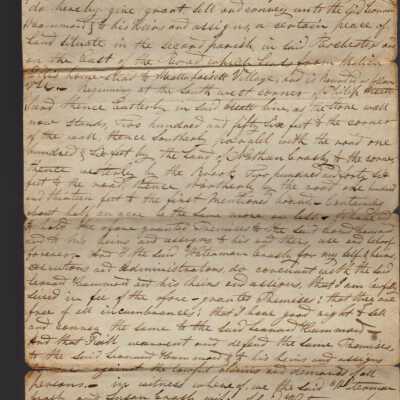 do hereby give grant sell and convey unto the said Leonard
Hammond & to his heirs and assigns, a certain peace of
Land situate in the second parish in said Rochester and
on the East of the Road which leads from
house to Village, and is bounded as follows
Beginning at the South west corner of Philip
Land thence Easterly in said line, as the stone wall
now stands, two hundred and fifty six feet to the corner
of the wall, thence Southerly parallel with the road one
hundred & six feet by the Land of Nathan Crosby to the corner,
thence westerly by the Two hundred and forty six
feet to the road, thence Northerly by the road one hundred
and thirteen feet to the first mentioned bound. Containing
about half an acre be the same more or less.
to hold the afore granted Premises to the said Leonard Hammond
and to his heirs and assigns to his and their use and behoof
forever. And I the said Waterman Crosby for my self & heirs,
executors and Administrators, do covenant with the said
Leonard Hammond and his heirs and assigns, that I am lawfully
seized in fee of the afore-granted Premises; that they are
free of all incumbrances; that I have good right to sell
and convey the same to the said Leonard Hammond
And that I will warrant and defend the same Premises,
to the said Leonard Hammond & to his heirs and assigns
against the lawful claims and demands of all
persons. — In witness whereof, we the said Waterman
Crosby and Susan Crosby wife of